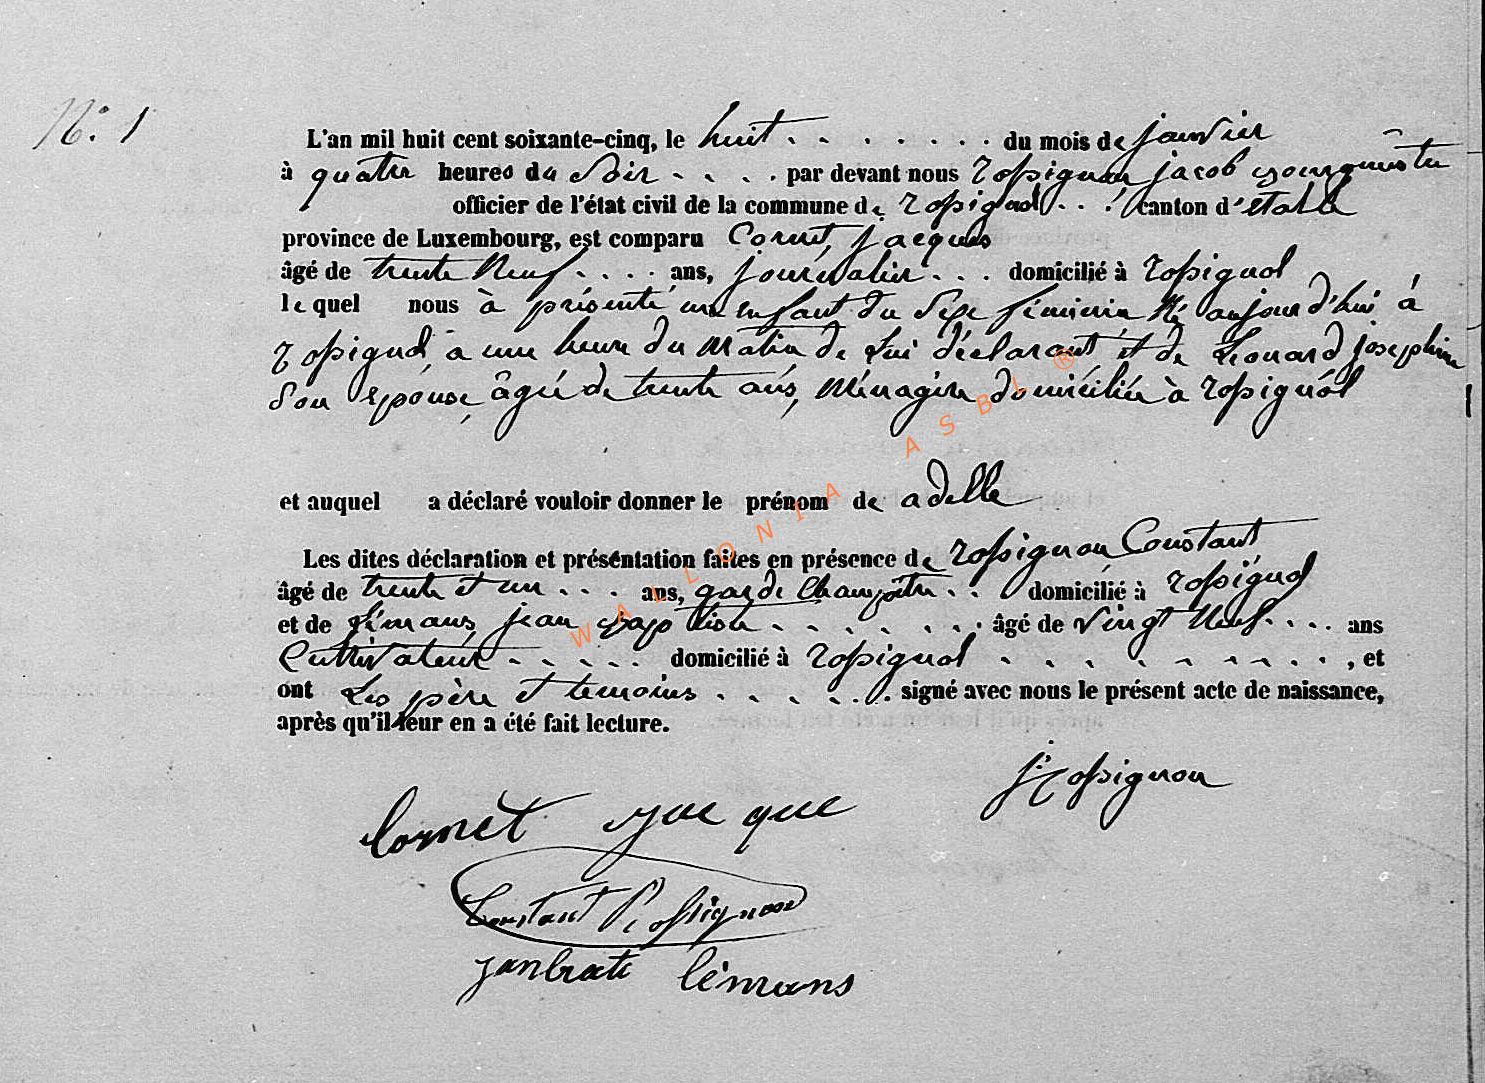 N° 1
L'an mil huit cent soixante-cinq, le huit . . . . . . . . du mois de janvier
à quatre heures du Soir . . . . par devant nous Rossignon jacob bourgmestre
officier de l'état civil de la commune de Rossignol . . . canton d'étalle
province de Luxembourg, est comparu Cornet, jacques
âgé de trente Neuf . . . . ans, journalier . . . domicilié à Rossignol
lequel nous à présenté un enfant du Sexe féminin Né aujourd'hui à
Rossignol à une heure du matin de Lui déclarant et de Léonard joséphine
Son épouse, âgée de trente ans, Ménagère domiciliée à Rossignol
et auquel a déclaré vouloir donner le prénom de adelle
Les dites déclaration et présentation faites en présence de Rossignon Constant
âgé de trente et un . . . ans, garde Champêtre . . domicilié à Rossignol
et de Lémans, jean baptiste . . . . . . . âgé de Vingt Neuf . . . . ans
Cultivateur . . . . . domicilié à Rossignol . . . . . . . . . , et
ont Les père et temoins . . . . . . signé avec nous le présent acte de naissance,
après qu'il leur en a été fait lecture.
J: Rossignon
Cornet jacque
Constant Rossignon
janbate lémans
WALLONIA ASBL ®